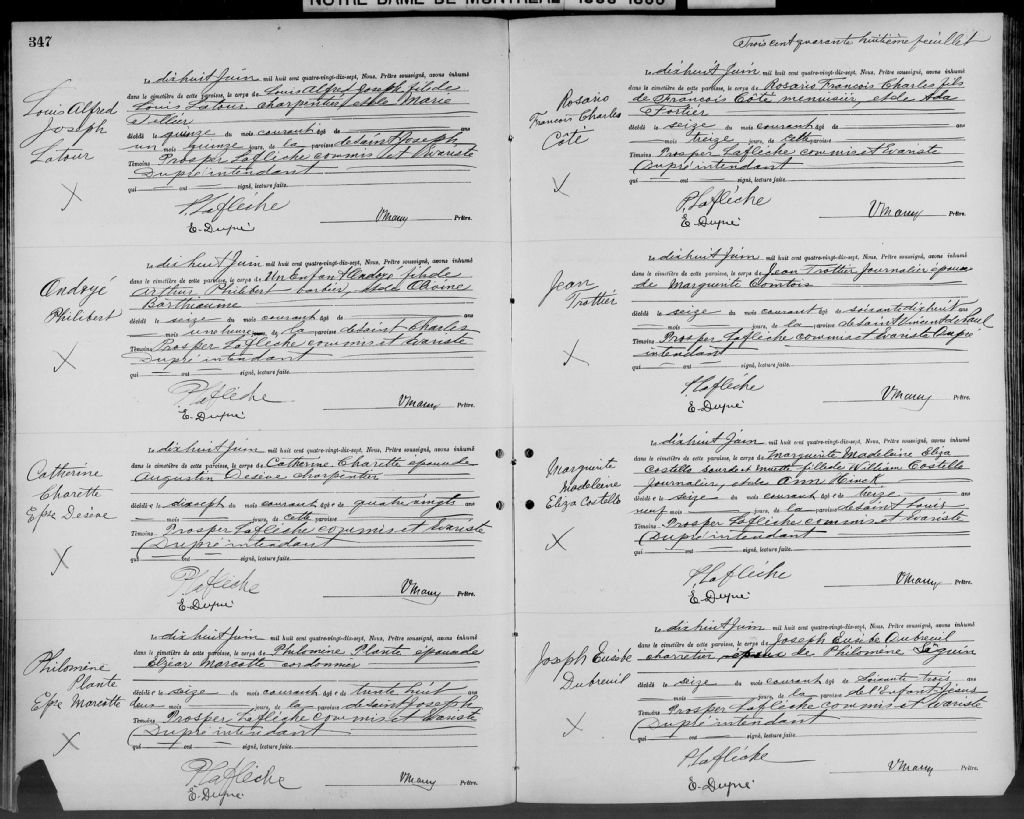 NOTRE DAME DE MONTREAL
347
Louis Alfred
Joseph
Latour
Le dix huit Juin mil huit cent quatre-vingt-dix-sept, Nous, Prêtre soussigné, avons inhumé
dans le cimetière de cette paroisse, le corps de Louis Alfred Joseph fils de
Louis Latour charpentier et de Marie
Tellier
décédé le quinze du mois courant âgé de ans
un mois quinze jours, de la paroisse de Saint Joseph
Témoins Prosper Laflèche commis et Evariste
Dupré intendant
qui — ont — signé, lecture faite.
P. Laflèche
E. Dupré
VMarry Prêtre.
Ondoyé
Philibert
Le dix huit Juin mil huit cent quatre-vingt-dix-sept, Nous, Prêtre soussigné, avons inhumé
dans le cimetière de cette paroisse, le corps de Un Enfant Ondoyé fils de
Arthur Philibert barbier, et de
Barthiaume
décédé le seize du mois courant âgé de ans
mois une heure de la paroisse de Saint Charles
Témoins Prosper Laflèche commis et Evariste
Dupré intendant
qui — ont — signé, lecture faite.
P Laflèche
E. Dupré
VMarry Prêtre.
Catherine
Charette
Epse Desève
Le dix huit Juin mil huit cent quatre-vingt-dix-sept, Nous, Prêtre soussigné, avons inhumé
dans le cimetière de cette paroisse, le corps de Catherine Charette épouse de
Augustin Desève charpentier
décédé e le dixsept du mois courant âgé e de quatre vingts ans
— mois — jours, de cette paroisse
Témoins Prosper Laflèche commis et Evariste
Dupré intendant
qui — ont — signé, lecture faite.
P Laflèche
E. Dupré
VMarry Prêtre.
Philomène
Plante
Epse Marcotte
Le dix huit Juin mil huit cent quatre-vingt-dix-sept, Nous, Prêtre soussigné, avons inhumé
dans le cimetière de cette paroisse, le corps de Philomène Plante épouse de
Elzéar Marcotte cordonnier
décédé e le seize du mois courant âgé e de trente huit ans
deux mois jours, de la paroisse de Saint Joseph
Témoins Prosper Laflèche commis et Evariste
Dupré intendant
qui — ont — signé, lecture faite.
P Laflèche
E. Dupré
VMarry Prêtre.
Trois cent quarante huitième feuillet
Rosario
Francois Charles
Côté
Le dix huit Juin mil huit cent quatre-vingt-dix-sept, Nous, Prêtre soussigné, avons inhumé
dans le cimetière de cette paroisse, le corps de Rosario Francois Charles fils
de Francois Côté menuisier, et de Ada
Fortier
décédé le seize du mois courant âgé de ans
mois treize jours, de cette paroisse
Témoins Prosper Laflèche commis et Evariste
Dupré intendant
qui — ont — signé, lecture faite.
P. Laflèche
E. Dupré
VMarry Prêtre.
Jean
Trottier
Le dix huit Juin mil huit cent quatre-vingt-dix-sept, Nous, Prêtre soussigné, avons inhumé
dans le cimetière de cette paroisse, le corps de Jean Trottier Journalier époux
de Marguerite Comtois
décédé le seize du mois courant âgé de soixante dix huit ans
mois jours, de la paroisse de Saint Vincent de Paul
Témoins Prosper Laflèche commis et Evariste Dupré
intendant
qui — ont — signé, lecture faite.
P. Laflèche
E. Dupré
VMarry Prêtre.
Marguerite
Madeleine
Eliza Costello
Le dix huit Juin mil huit cent quatre-vingt-dix-sept, Nous, Prêtre soussigné, avons inhumé
dans le cimetière de cette paroisse, le corps de Marguerite Madeleine Eliza
Costello sourde et muette fille de William Costello
Journalier, et de Ann
décédé e le seize du mois courant âgé e de treize ans
neuf mois jours, de la paroisse de Saint Louis
Témoins Prosper Laflèche commis et Evariste
Dupré intendant
qui — ont — signé, lecture faite.
P. Laflèche
E. Dupré
VMarry Prêtre.
Joseph Eusèbe
Dubreuil
Le dix huit Juin mil huit cent quatre-vingt-dix-sept, Nous, Prêtre soussigné, avons inhumé
dans le cimetière de cette paroisse, le corps de Joseph Eusèbe Dubreuil
charretier époux de Philomène Séguin
décédé le seize du mois courant âgé de Soixante trois ans
mois jours, de la paroisse de l'Enfant Jésus
Témoins Prosper Laflèche commis et Evariste
Dupré intendant
qui — ont — signé, lecture faite.
P. Laflèche
E. Dupré
VMarry Prêtre.